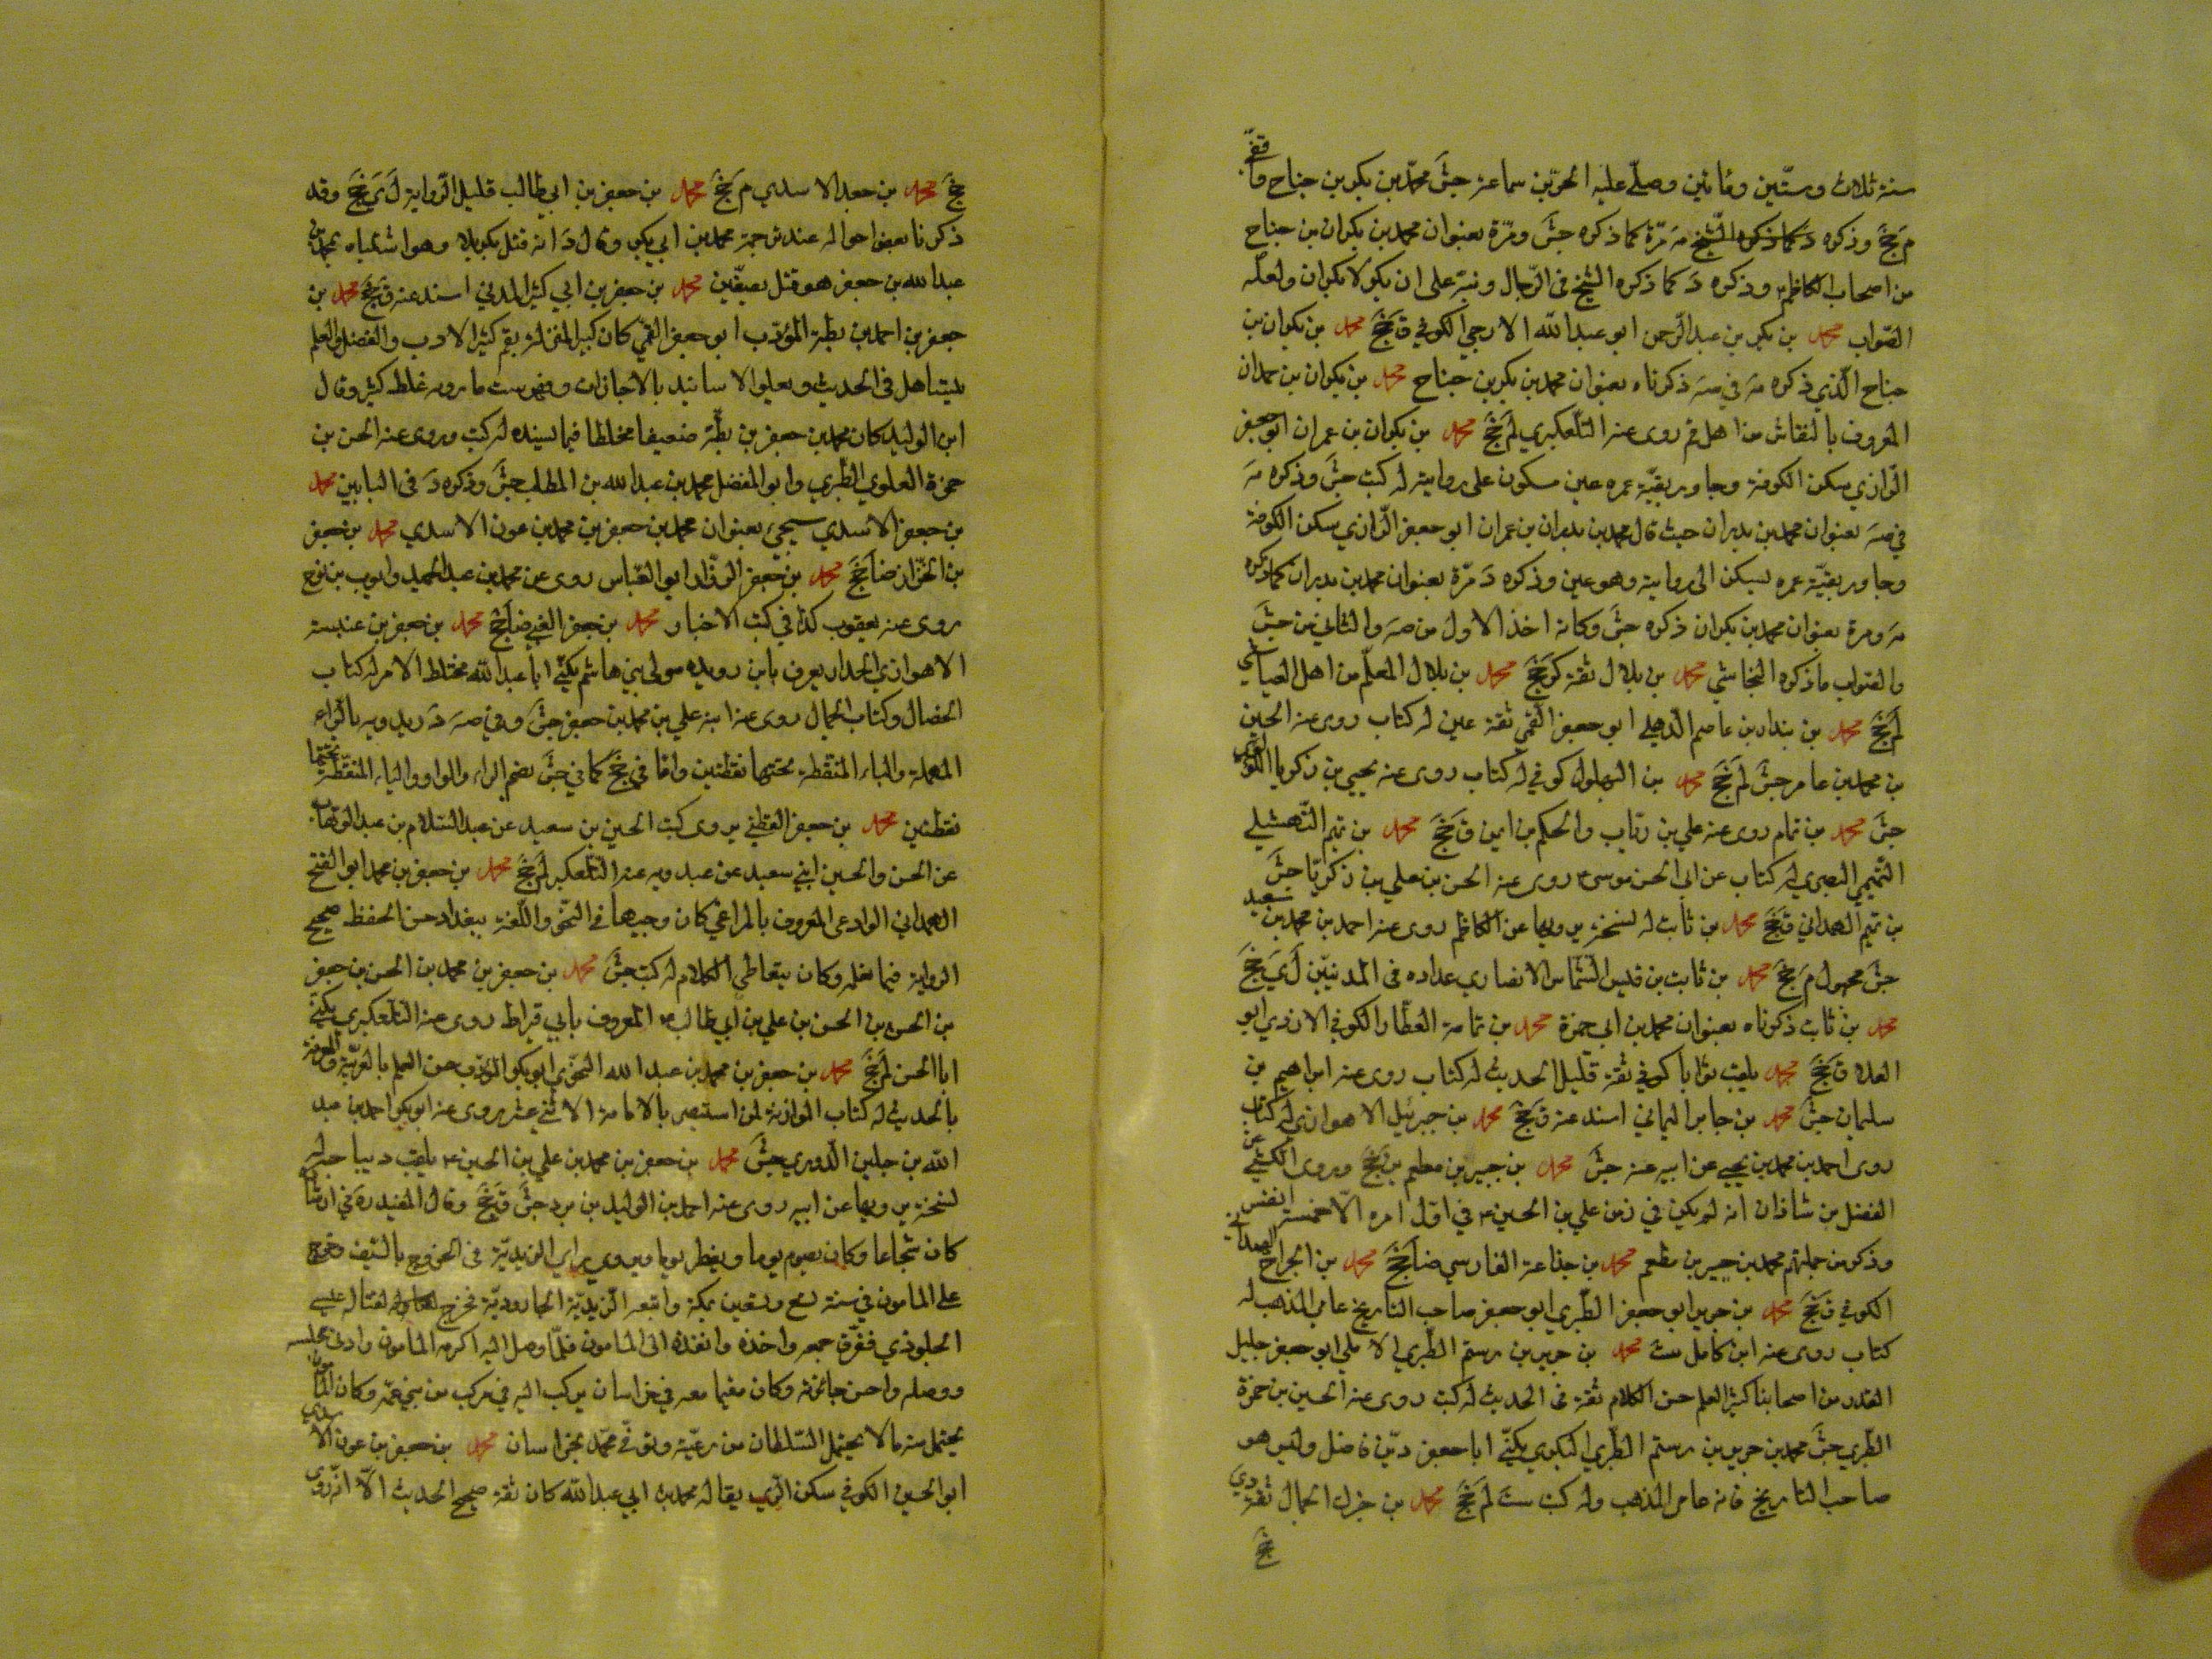 سنة ثلاث وستين ومائتين وصلّى عليه الحسن بن سماعة جش محمد بن بكر بن جناح واقفي
م جخ وذكره د كما ذكره الشيخ مرّة كما ذكره جش ومرّة بعنوان محمد بن بكران بن جناح
من اصحاب الكاظم وذكره د كما ذكره الشيخ في الرجال ونبّه على ان بكر لا بكران ولعلّه
الصّواب محمد بن بكر بن عبد الرحمن ابو عبد الله الارحبي الكوفي ق جخ محمد بن بكران بن
جناح الّذي ذكره في صه ذكرناه بعنوان محمد بن بكر بن جناح محمد بن بكران بن حمدان
المعروف بالنقاش من اهل قم روى عنه التلّعكبري لم جخ محمد بن بكران بن عمران ابو جعفر
الرّازي سكن الكوفة وجاور بقيّة عمره عين مسكون على روايته له كتب جش وذكره مه
في صه بعنوان محمد بن بدران حيث قال محمد بن بدران بن عمران ابو جعفر الرّازي سكن الكوفة
وجاور بقيّة عمره يسكن الى روايته وهو عين وذكره د مرّة بعنوان محمد بن بدران كما ذكره
مه ومرة بعنوان محمد بن بكران ذكره جش وكانه اخذ الاول من صه والثاني من جش
والصّواب ما ذكره النجاشي محمد بن بلال ثقة كر جخ محمد بن بلال المعلّم من اهل العياشي
لم جخ محمد بن بندار بن عاصم الذهلي ابو جعفر القمي ثقة عين له كتاب روى عنه الحسين
بن محمد بن عامر جش لم جخ محمد بن البهلول كوفي له كتاب روى عنه يحيى بن زكريا اللؤلؤي
جش محمد بن تمام روى عنه علي بن رئاب والحكم بن ايمن ق جخ محمد بن تميم النّهشلي
التّميمي البصري له كتاب عن ابي الحسن موسى روى عنه الحسن بن علي بن زكريّا جش
بن تميم الهمداني ق جخ محمد بن ثابت له نسخة يرويها عن الكاظم روى عنه احمد بن محمد بن سعيد
جش مجهول م جخ محمد بن ثابت بن قيس الشّماس الانصاري عداده في المدنيّين ل ي جخ
محمد بن ثابت ذكرناه بعنوان محمد بن ابي حمزة محمد بن ثمامة العطّار الكوفي الازدي ابو
العلا ق جخ محمد يلقب ثوابا كوفي ثقة قليل الحديث له كتاب روى عنه ابراهيم بن
سليمان جش محمد بن جابر اليماني اسند عنه ق جخ محمد بن جبرئيل الاهوازي له كتاب
روى احمد بن محمد بن يحيى عن ابيه عنه جش محمد بن جبير بن مطعم ين جخ وروى الكشّي عن
الفضل بن شاذان انه لم يكن في زمن علي بن الحسين في اوّل امره الّا خمسة انفس
وذكر من جملتهم محمد بن جبير بن مطعم محمد بن جذاعة الفارسي ضا جخ محمد بن الجراح
الكوفي ق جخ محمد بن جرير ابو جعفر الطّبري ابو جعفر صاحب التاريخ عامي المذهب له
كتاب روى عنه ابن كامل ست محمد بن جرير بن رستم الطّبري الآملي ابو جعفر جليل
القدر من اصحابنا كثير العلم حسن الكلام ثقة في الحديث له كتب روى عنه الحسين بن حمزة
الطّبري جش محمد بن جرير بن رستم الطّبري الكبير يكنّى ابا جعفر ديّن فاضل وليس هو
صاحب التاريخ فانه عامي المذهب وله كتب ست لم جخ محمد بن جزك الجمال ثقة دي
جخ
جخ محمد بن جعد الاسدي م جخ محمد بن جعفر بن ابي طالب قليل الرّواية ل ي جخ وقد
ذكرنا بعض احواله عند ترجمة محمد بن ابي بكر وقال د انه قتل بكربلا وهو اشتباه بمحمد بن
عبد الله بن جعفر هو قتل بصفّين محمد بن جعفر بن ابي كثير المدني اسند عنه ق جخ محمد بن
جعفر بن احمد بن بطّة المؤدّب ابو جعفر القمّي كان كبير المنزلة بقم كثير الادب والفضل والعلم
يتساهل في الحديث ويعلو الاسانيد بالاجازات وفهرست ما رواه غلط كثير وقال
ابن الوليد كان محمد بن جعفر بن بطّة ضعيفا مخلطا فيما يسنده له كتب وروى عنه الحسن بن
حمزة العلوي الطّبري وابو المفضل محمد بن عبد الله بن المطلب جش وذكره د في البابين محمد
بن جعفر الاسدي سيجيء بعنوان محمد بن جعفر بن محمد بن عون الاسدي محمد بن جعفر
بن الخزّاز ضا جخ محمد بن جعفر الرزّاز ابو العبّاس روى عن محمد بن عبد الحميد وايوب بن نوح
روى عنه يعقوب كذا في كتب الاخبار محمد بن جعفر الغبي ضا جخ محمد بن جعفر بن عنبسة
الاهوازي الحداد يعرف بابن رويده مولى بني هاشم يكنّى ابا عبد الله مختلط الامر له كتاب
الخصال وكتاب الجمال روى عنه ابنه علي بن محمد بن جعفر جش وفي صه د ريدويه بالرّاء
المهملة والياء المنقطة تحتها نقطتين واما في جخ كما في جش بضم الراء والواو والياء المنقّطة تحتها
نقطتين محمد بن جعفر القطني يروى كتب الحسين بن سعيد عن عبد السّلام بن عبد الوهّاب
عن الحسن والحسين ابني سعيد عن عبدويه عنه التّلعكبري لم جخ محمد بن جعفر بن محمد ابو الفتح
الهمداني الوادعي المعروف بالمراغي كان وجيها في النّحو واللّغة ببغداد حسن الحفظ صحيح
الرواية فيما نعلمه وكان يتعاطى الكلام له كتب جش محمد بن جعفر بن محمد بن الحسن بن جعفر
بن الحسن بن الحسن بن علي بن ابي طالب المعروف بابي قراط روى عنه التّلعكبري يكنّى
ابا الحسن لم جخ محمد بن جعفر بن محمد بن عبد الله النحوي ابو بكر المؤدّب حسن العلم بالعربيّة والمعرفة
بالحديث له كتاب الموازنة لمن استبصر بالامامة الاثني عشر روى عنه ابو بكر احمد بن عبد
الله بن جلين الدّوري جش محمد بن جعفر بن محمد بن علي بن الحسين يلقب ديباجه له
نسخة يرويها عن ابيه روى عنه احمد بن الوليد بن برد جش ق جخ وقال المفيد ره في ارشاده
كان شجاعا وكان يصوم يوما ويفطر يوما ويروى براي الزيديّة في الخروج بالسّيف وخرج
على المامون في سنة تسع وتسعين بمكة واتبعه الزّيديّة الجاروديّة فخرج لقتاله عيسى
الجلوذي ففرّق جمعه واخذه وانفذه الى المامون فلمّا وصل اليه اكرمه المامون وادنى مجلسه
ووصله واحسن جائزته وكان مقيما معه في خراسان يركب اليه في مركب من بني عمّه وكان المامون
يحتمل منه ما لا يحتمل السّلطان من رعيّته وتوفّى محمّد بخراسان محمد بن جعفر بن عون الاسدي
ابو الحسين الكوفي سكن الرّي يقال له محمد بن ابي عبد الله كان ثقة صحيح الحديث الّا انّه روى